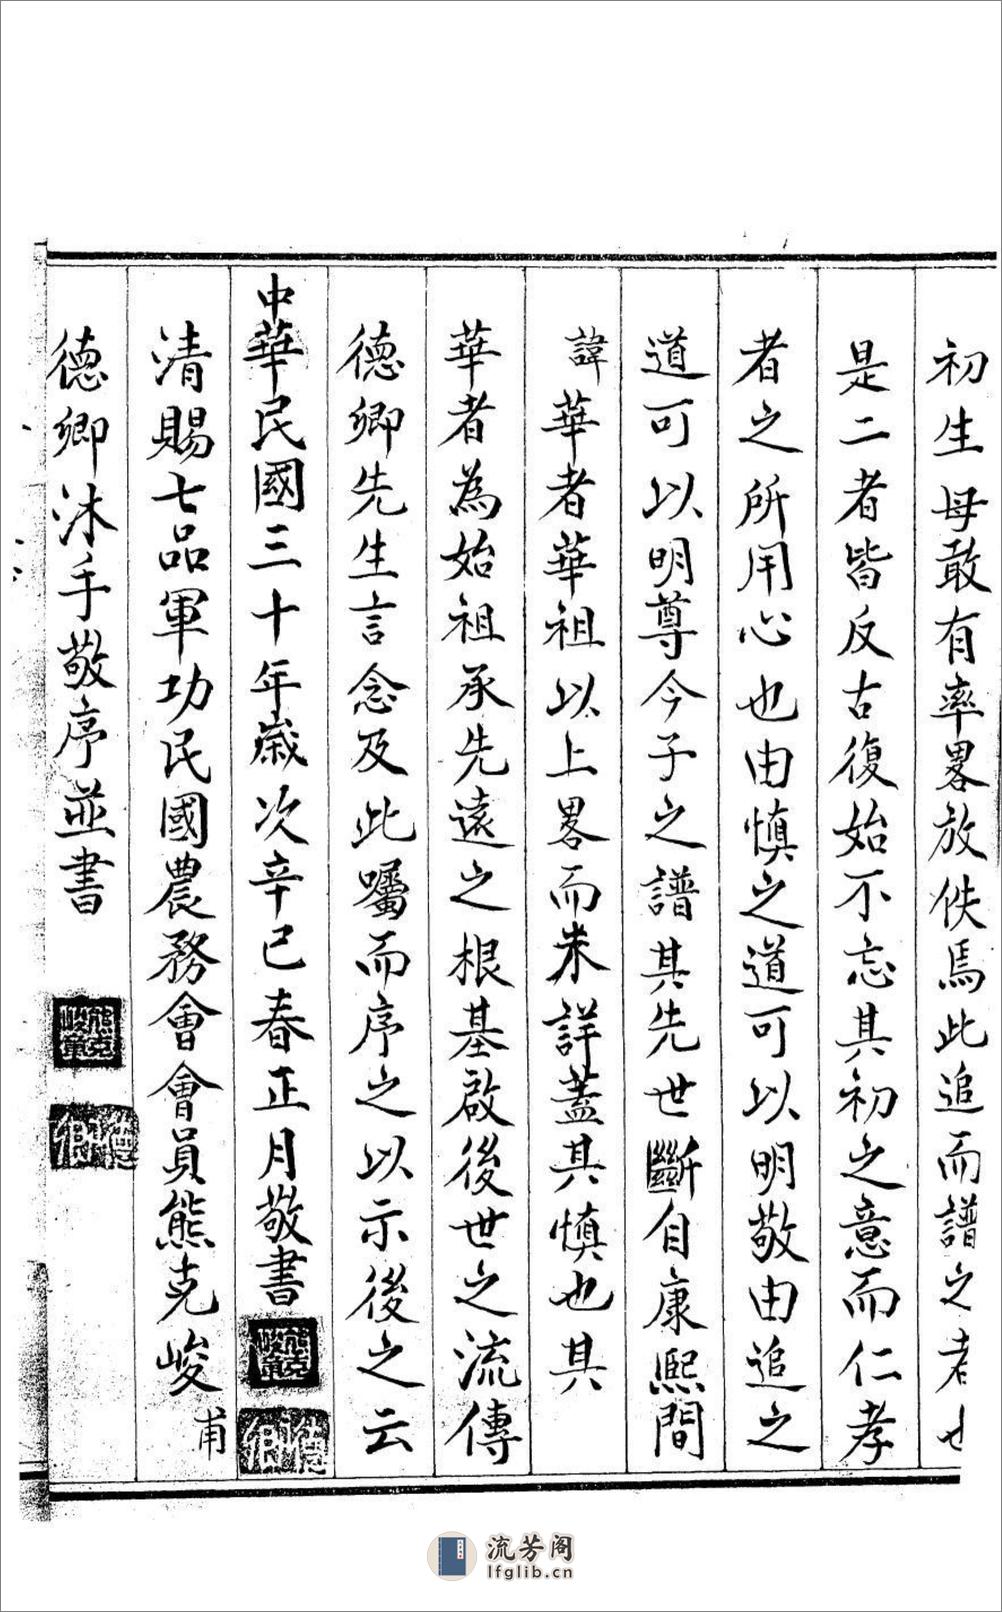 初生母敢有率畧放佚焉此追而譜之者也
是二者皆反古復始不忘其初之意而仁孝
者之所用心也由慎之道可以明敬由追之
道可以明尊今子之譜其先世斷自康熙間
諱華者華祖以上畧而未詳蓋其慎也其
華者為始祖承先遠之根基啟後世之流傳
德卿先生言念及此囑而序之以示後之云
中華民國三十年歲次辛已春正月敬書
熊克峻章
德卿
清賜七品軍功民國農務會會員熊克峻甫
德卿沐手敬序並書
熊克峻章
德卿
流芳阁
lfglib.cn